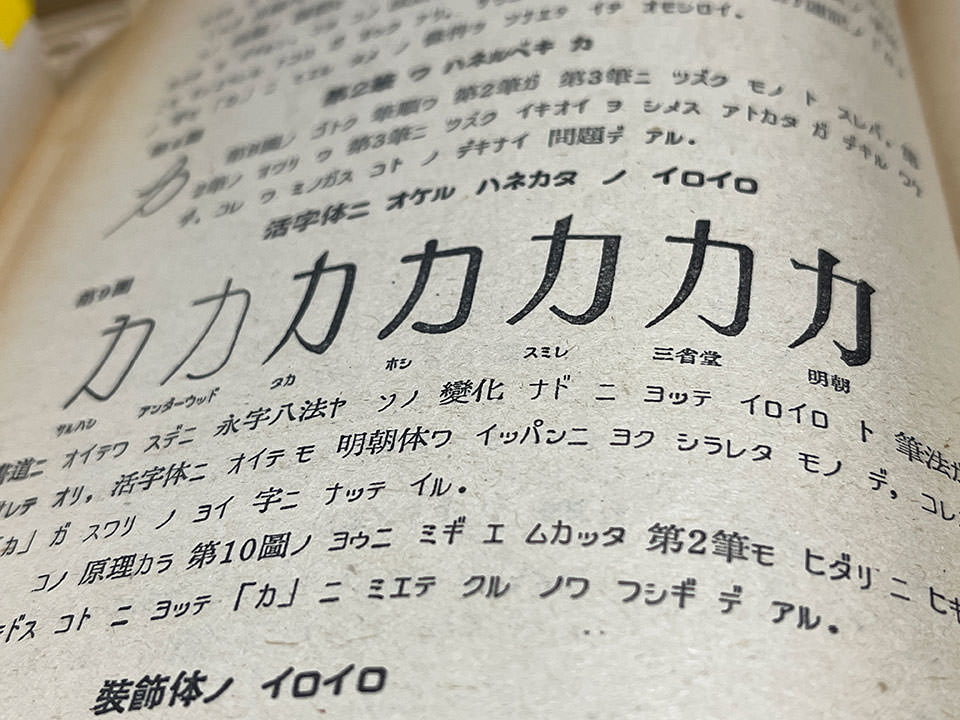 第2筆 ワ ハネルベキ カ
第8圖ノ ゴトク 筆順ワ 第2筆ガ 第3筆ニ ツズク モノ ト スレバ，第
2筆ノ オワリ ワ 第3筆ニ ツズク イキオイ ヲ シメス アトカタ ガ デキル ワケ
デ，コレ ワ ミノガス コト ノ デキナイ 問題デ アル．
活字体ニ オケル ハネカタ ノ イロイロ
第9圖
カ カ カ カ カ カ カ
サルハシ アンターウッド タカ ホシ スミレ 三省堂 明朝
書道ニ オイテワ スデニ 永字八法ヤ ソノ 變化 ナド ニ ヨッテ イロイロ ト 筆法が
レテ オリ，活字体ニ オイテ モ 明朝体ワ イッパンニ ヨク シラレタ モノ デ，コレ
「カ」ガ スワリ ノ ヨイ 字ニ ナッテ イル．
コノ 原理カラ 第10圖ノ ヨウニ ミギ エ ムカッタ 第2筆モ ヒダリ ニ ヒキ
モドス コト ニ ヨッテ「カ」ニ ミエテ クル ノワ フシギ デ アル．
装飾体ノ イロイロ